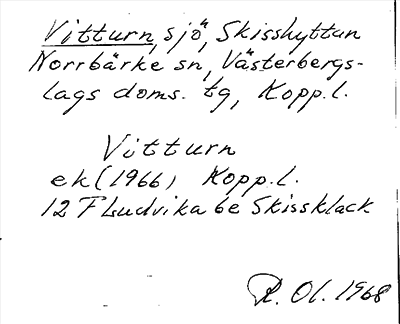 Vitturn, sjö, Skisshyttan
Norrbärke sn, Västerbergs-
lags doms. tg, Kopp.l.
Vitturn
ek (1966) Kopp.l.
12 F Ludvika 6e Skissklack
R. Ol. 1968